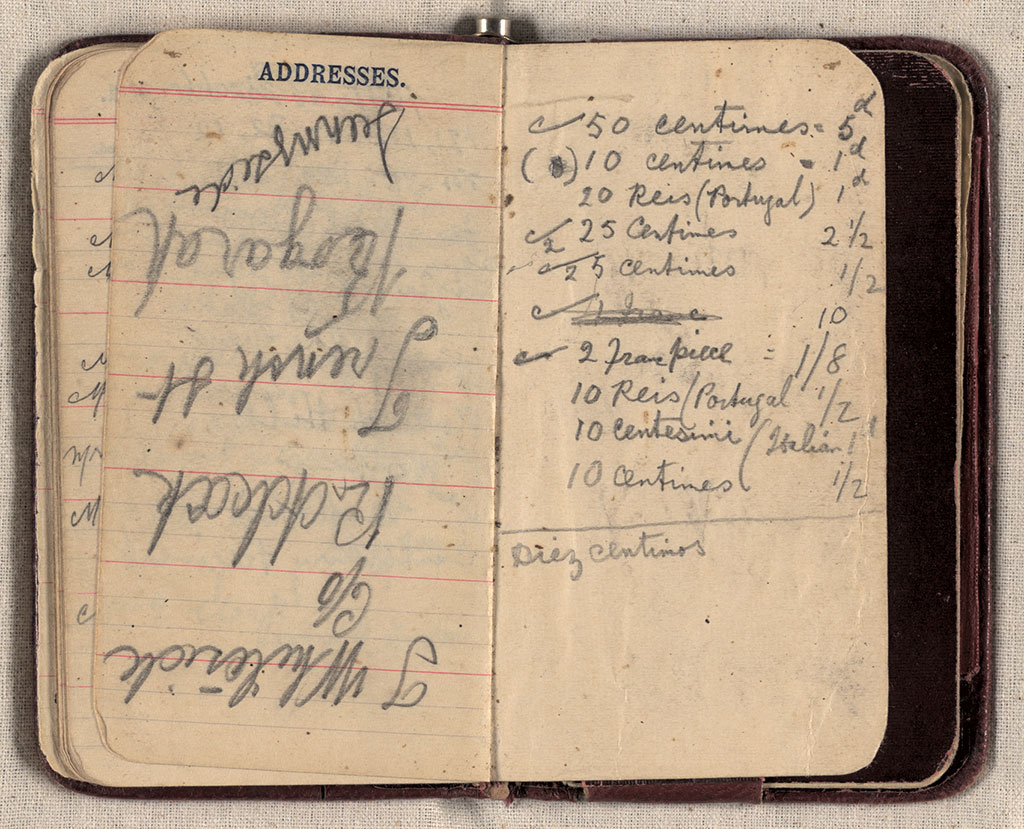 ADDRESSES.
Whiteside
C/o
French St
Kogarah
Sunnyside
c ✓ 50 centimes = 5d
( ) 10 centimes = 1d
20 Reis (Portugal) 1d
c ✓ 2 25 Centimes 2 1/2
c ✓ 2 5 centimes 1/2
c ✓ 10
c 2 Franc piece = 1/8
10 Reis (Portugal 1/2
10 Centesimi (Italian 1'
10 Centimes 1/2
Diez centimos